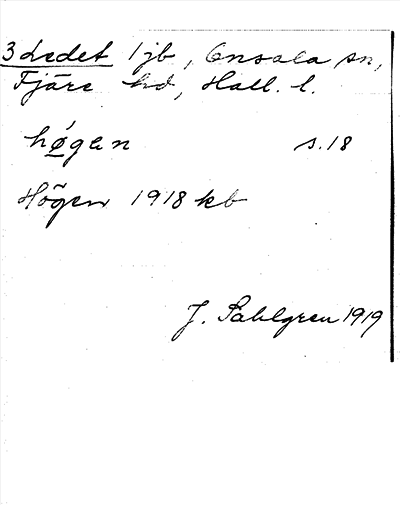 3 Ledet 1 jb, Onsala sn,
Fjäre hd, Hall. l.
hǿgen s. 18
Högen 1918 kb
J. Sahlgren 1919